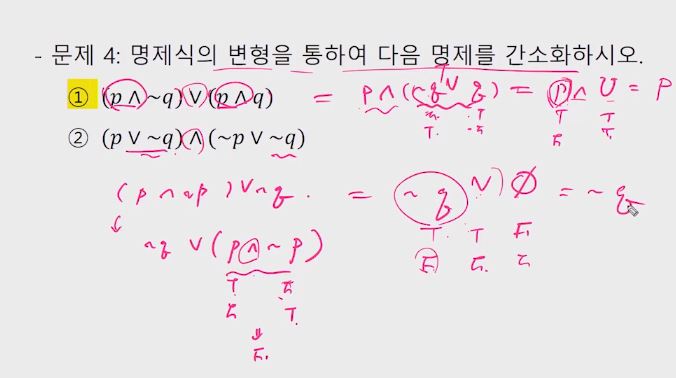 - 문제 4: 명제식의 변형을 통하여 다음 명제를 간소화하시오.
① (p ∧ ~q) ∨ (p ∧ q) = p ∧ (~q ∨ q) = p ∧ U = p
T. T T T
F F
② (p ∨ ~q) ∧ (~p ∨ ~q)
(p ∧ ~p) ∨ ~q. = ~q ∨ ∅ = ~q
↓ ~q ∨ (p ∧ ~p) T. T F.
T F F. F. F
F T.
⇓
F.